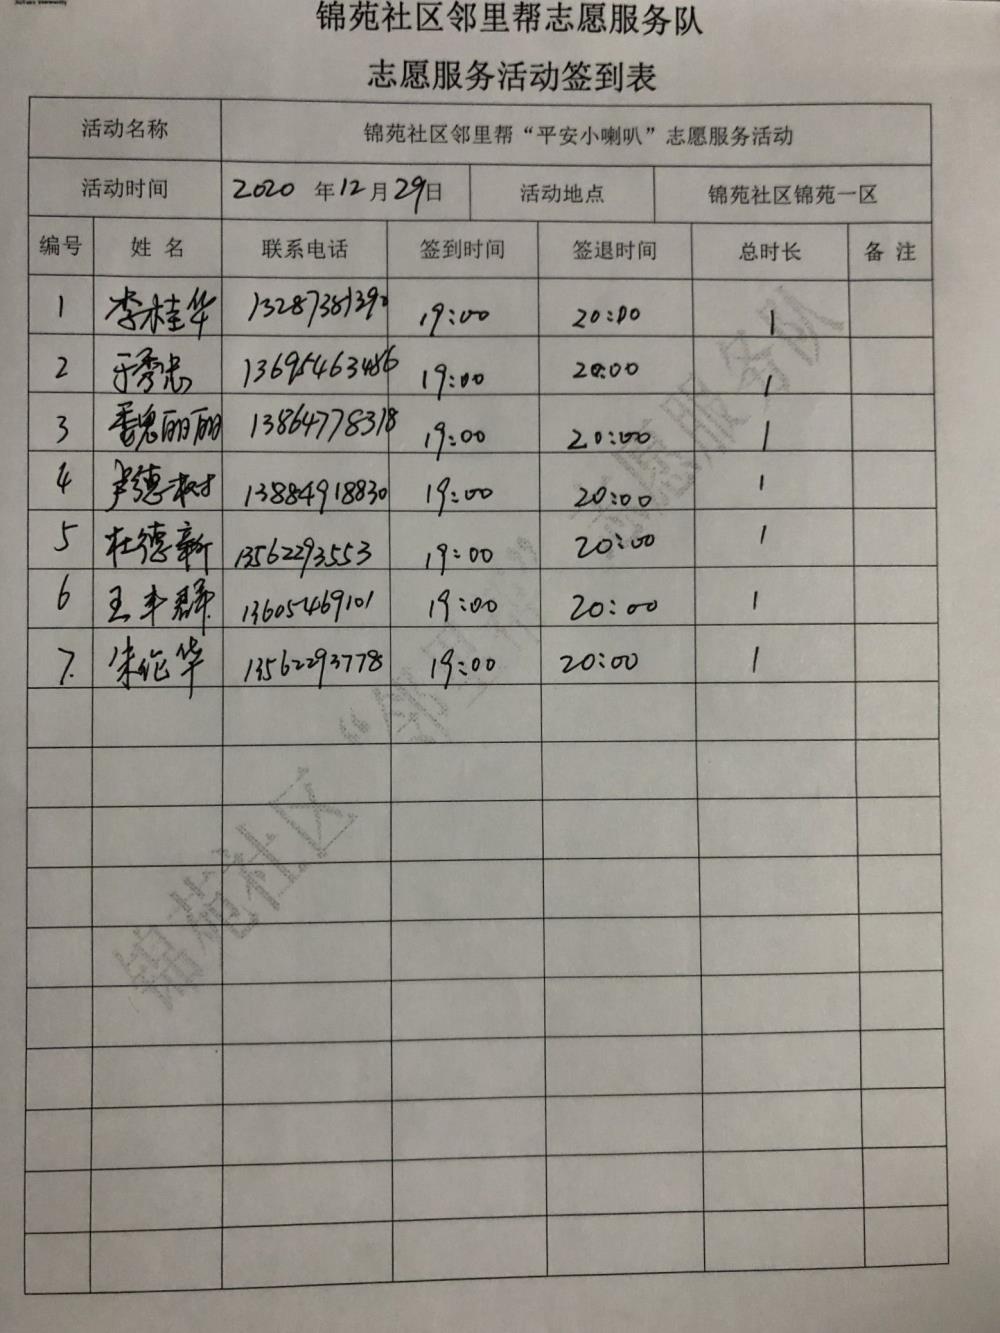 锦苑社区邻里帮志愿服务队
志愿服务活动签到表
活动名称 锦苑社区邻里帮“平安小喇叭”志愿服务活动
活动时间 2020 年 12 月 29 日 活动地点 锦苑社区锦苑一区
编号 姓 名 联系电话 签到时间 签退时间 总时长 备 注
1 李桂华 13287381392 19:00 20:00 1
2 于秀忠 13695463486 19:00 20:00 1
3 魏丽丽 13864778318 19:00 20:00 1
4 尹德树 13884918830 19:00 20:00 1
5 杜德新 13562293553 19:00 20:00 1
6 王丰群 13605469101 19:00 20:00 1
7. 朱伦华 13562293778 19:00 20:00 1
锦苑社区“邻里帮”志愿服务队